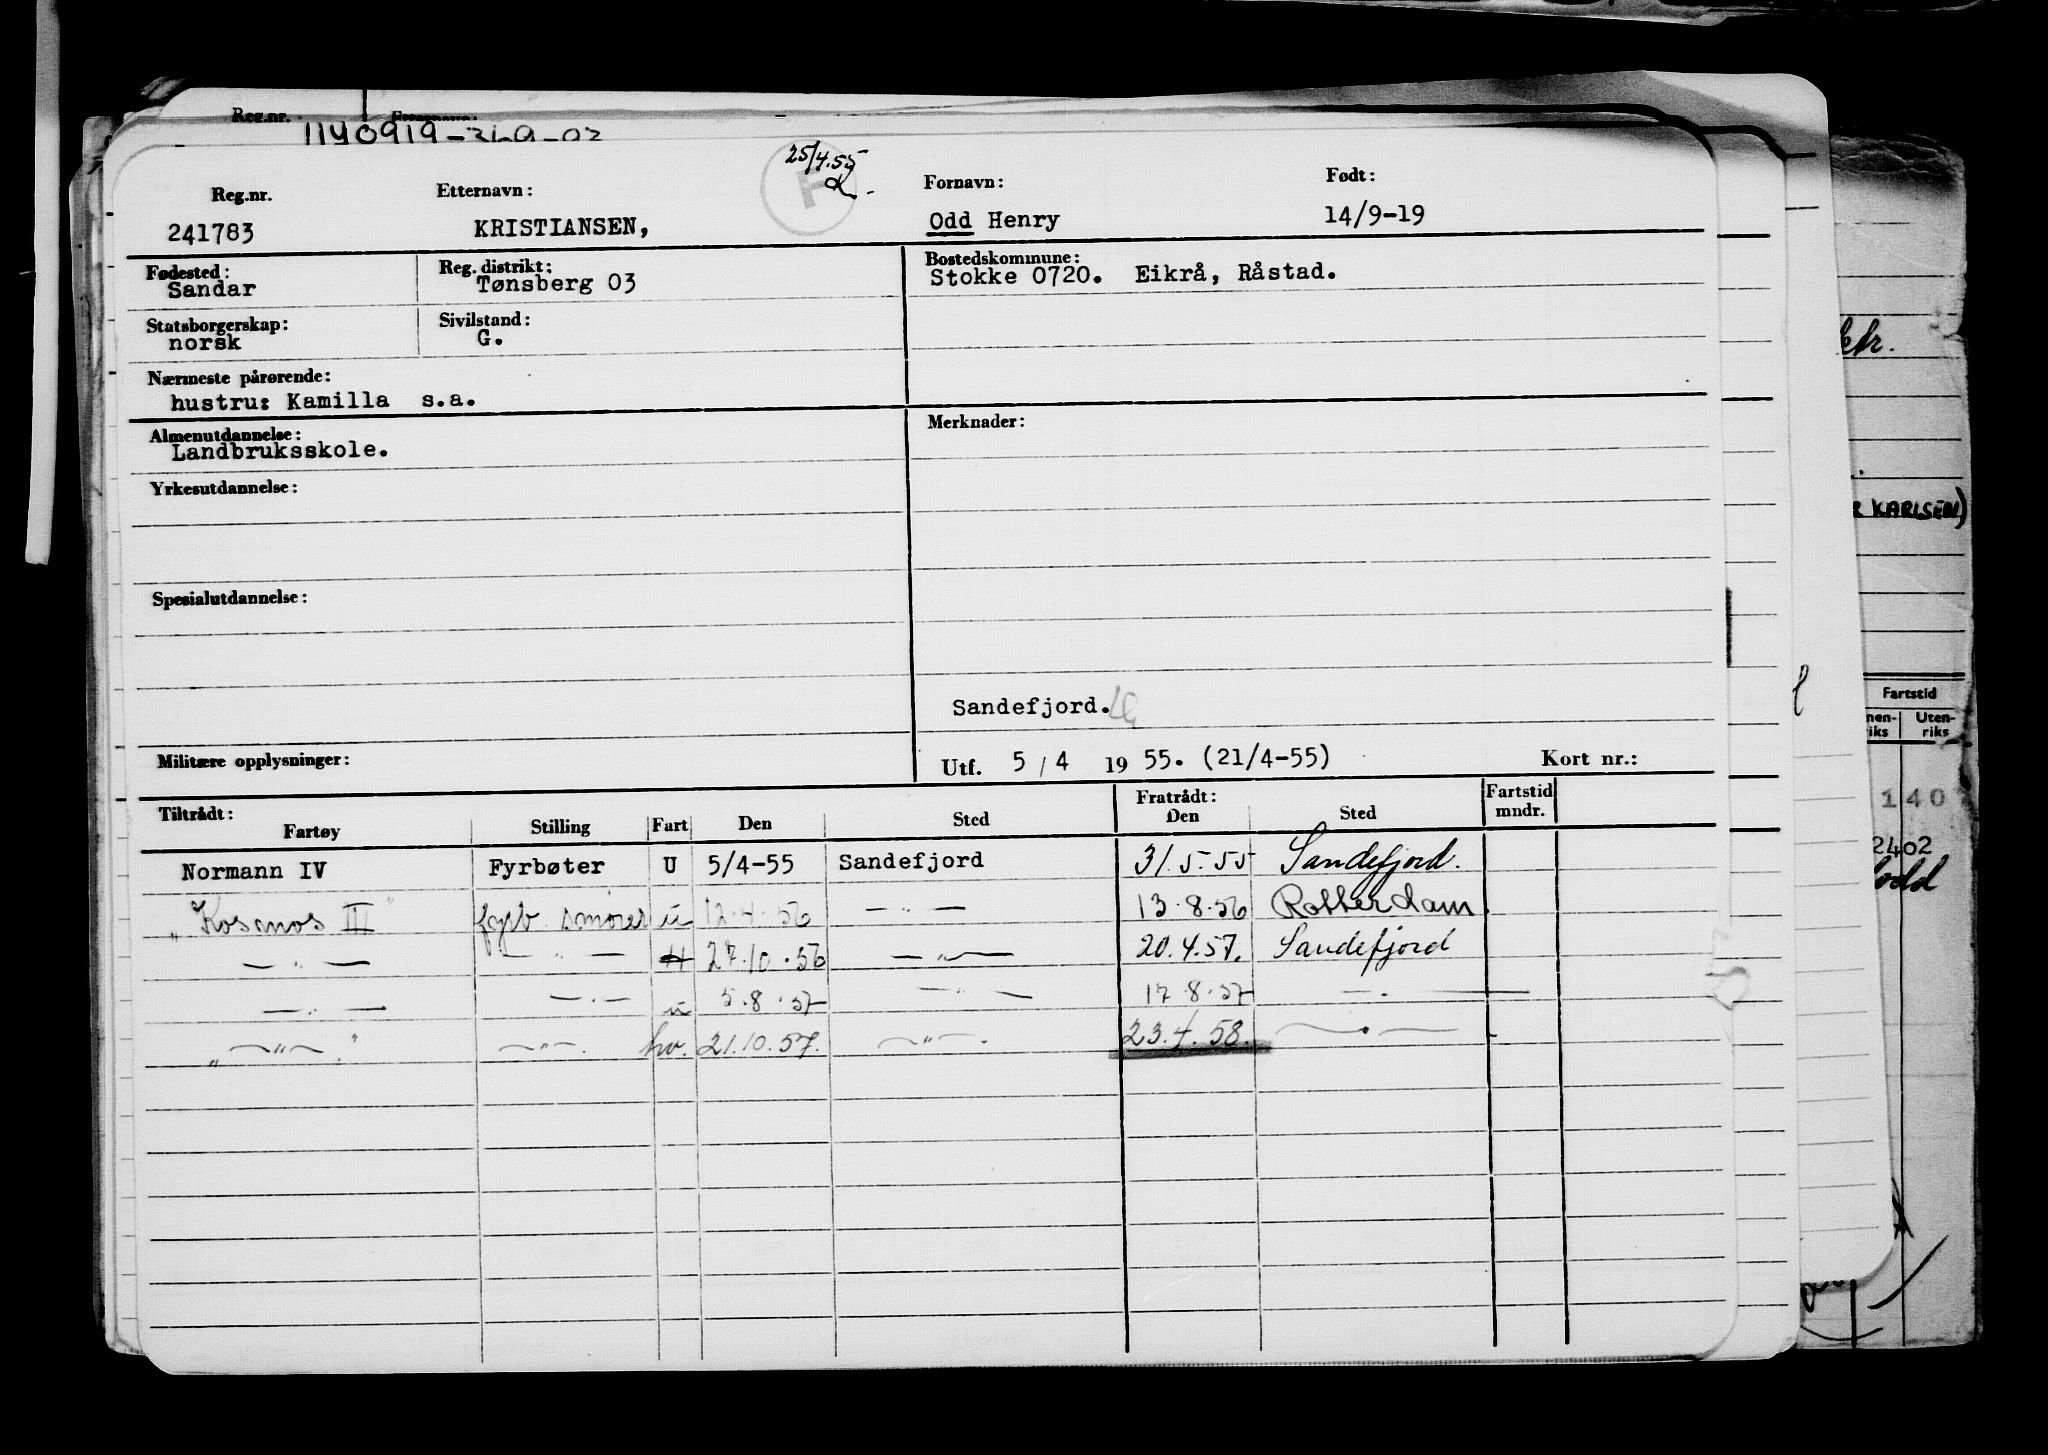 Reg.nr.
1140919-
25/4.55
Reg.nr. Etternavn: Fornavn: Født:
241783 KRISTIANSEN, Odd Henry 14/9-19
Fødested: Reg. distrikt: Bostedskommune:
Sandar Tønsberg 03 Stokke 0720. Eikrå, Råstad.
Statsborgerskap: Sivilstand:
norsk G.
Nærmeste pårørende:
hustru: Kamilla s.a.
Almenutdannelse: Merknader:
Landbruksskole.
Yrkesutdannelse:
Spesialutdannelse:
Sandefjord.
Militære opplysninger: Utf. 5/4 1955. (21/4-55) Kort nr.:
Tiltrådt: Fratrådt: Fartstid
Fartøy Stilling Fart Den Sted Den Sted mndr.
Normann IV Fyrbøter U 5/4-55 Sandefjord 31.5.55 Sandefjord.
"Kosmos III" fyrb. smører u 12.4.56 — " — 13.8.56 Rotterdam.
— " — — " — H 27.10.56 — " — 20.4.57. Sandefjord
— " — — " — u 5.8.57 — " — 17.8.57 — " —
" — " — " — " — hv. 21.10.57. — " — 23.4.58. — " —
ktr.
R KARLSEN)
Fartstid
nen- Uten-
iks riks
140
2402